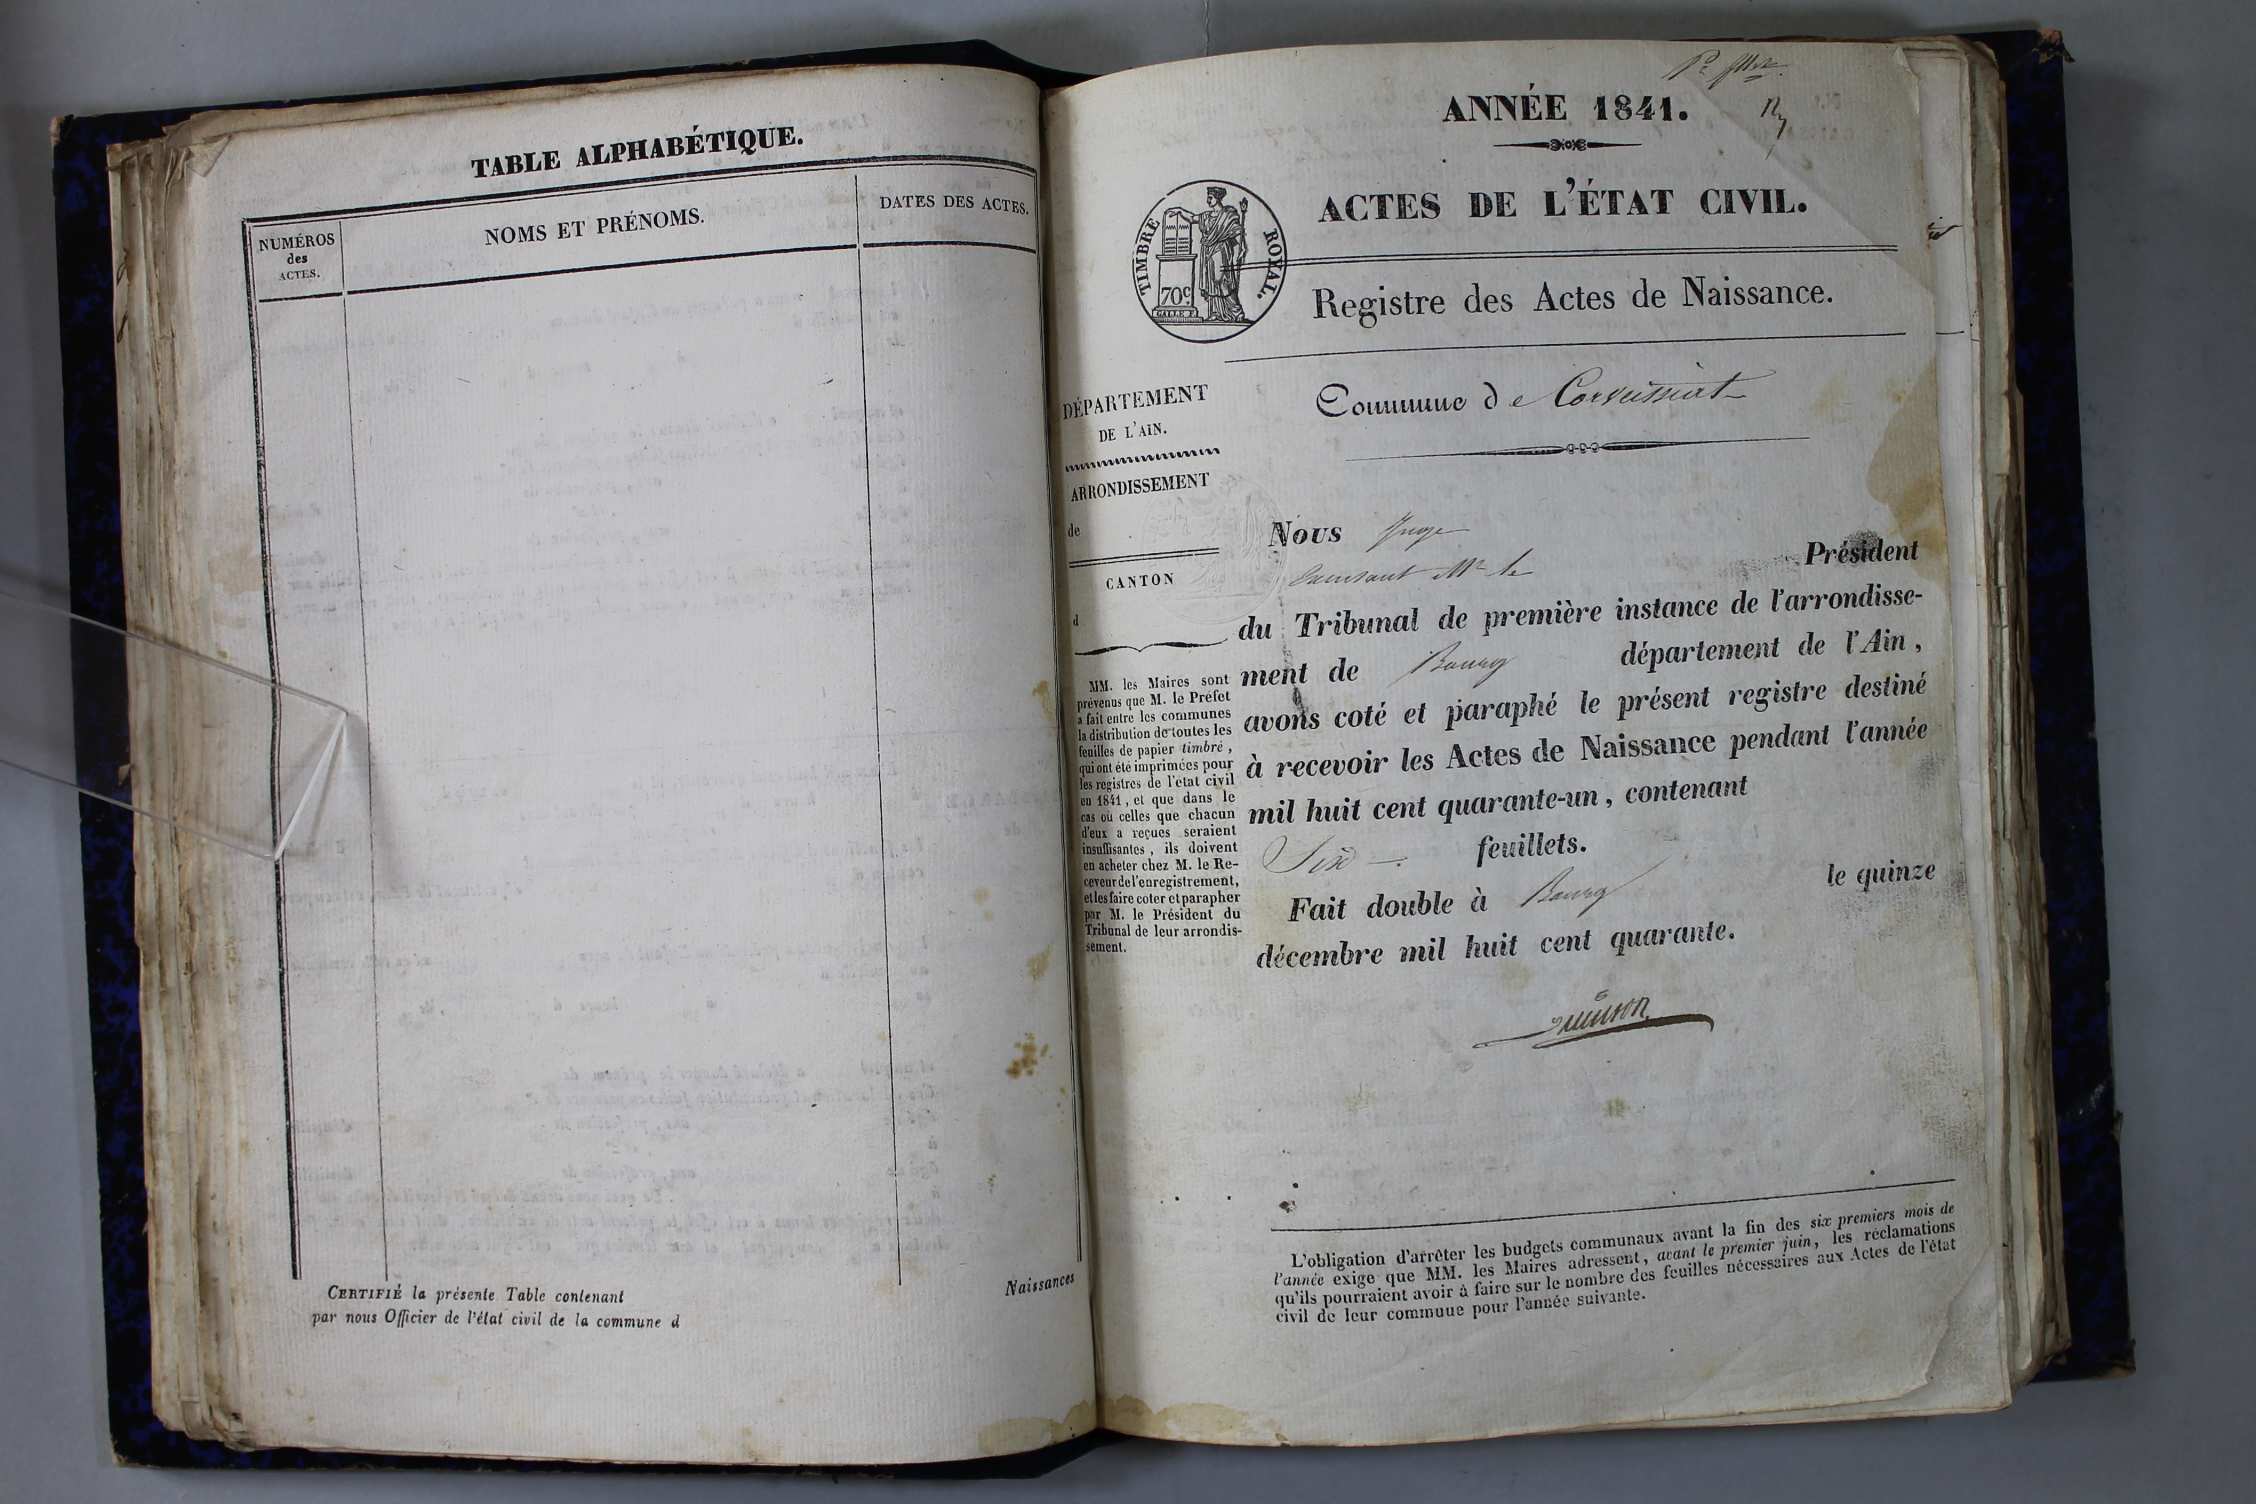 TABLE ALPHABÉTIQUE.
NUMÉROS
des
ACTES.
NOMS ET PRÉNOMS.
DATES DES ACTES.
CERTIFIÉ la présente Table contenant
Naissances
par nous Officier de l'état civil de la commune d
ANNÉE 1841.
ACTES DE L'ÉTAT CIVIL.
TIMBRE ROYAL.
70c.
Registre des Actes de Naissance.
Commune de Corveissiat
DÉPARTEMENT
DE L'AIN.
ARRONDISSEMENT
de
CANTON
d
MM. les Maires sont
prévenus que M. le Préfet
a fait entre les communes
la distribution de toutes les
feuilles de papier timbré,
qui ont été imprimées pour
les registres de l'état civil
en 1841, et que dans le
cas où celles que chacun
d'eux a reçues seraient
insuffisantes, ils doivent
en acheter chez M. le Re-
ceveur de l'enregistrement,
et les faire coter et parapher
par M. le Président du
Tribunal de leur arrondis-
sement.
Nous Juge
Mr le Président
du Tribunal de première instance de l'arrondisse-
ment de Bourg département de l'Ain,
avons coté et paraphé le présent registre destiné
à recevoir les Actes de Naissance pendant l'année
mil huit cent quarante-un, contenant
Six feuillets.
Fait double à Bourg le quinze
décembre mil huit cent quarante.
L'obligation d'arrêter les budgets communaux avant la fin des six premiers mois de
l'année exige que MM. les Maires adressent, avant le premier juin, les réclamations
qu'ils pourraient avoir à faire sur le nombre des feuilles nécessaires aux Actes de l'état
civil de leur commune pour l'année suivante.